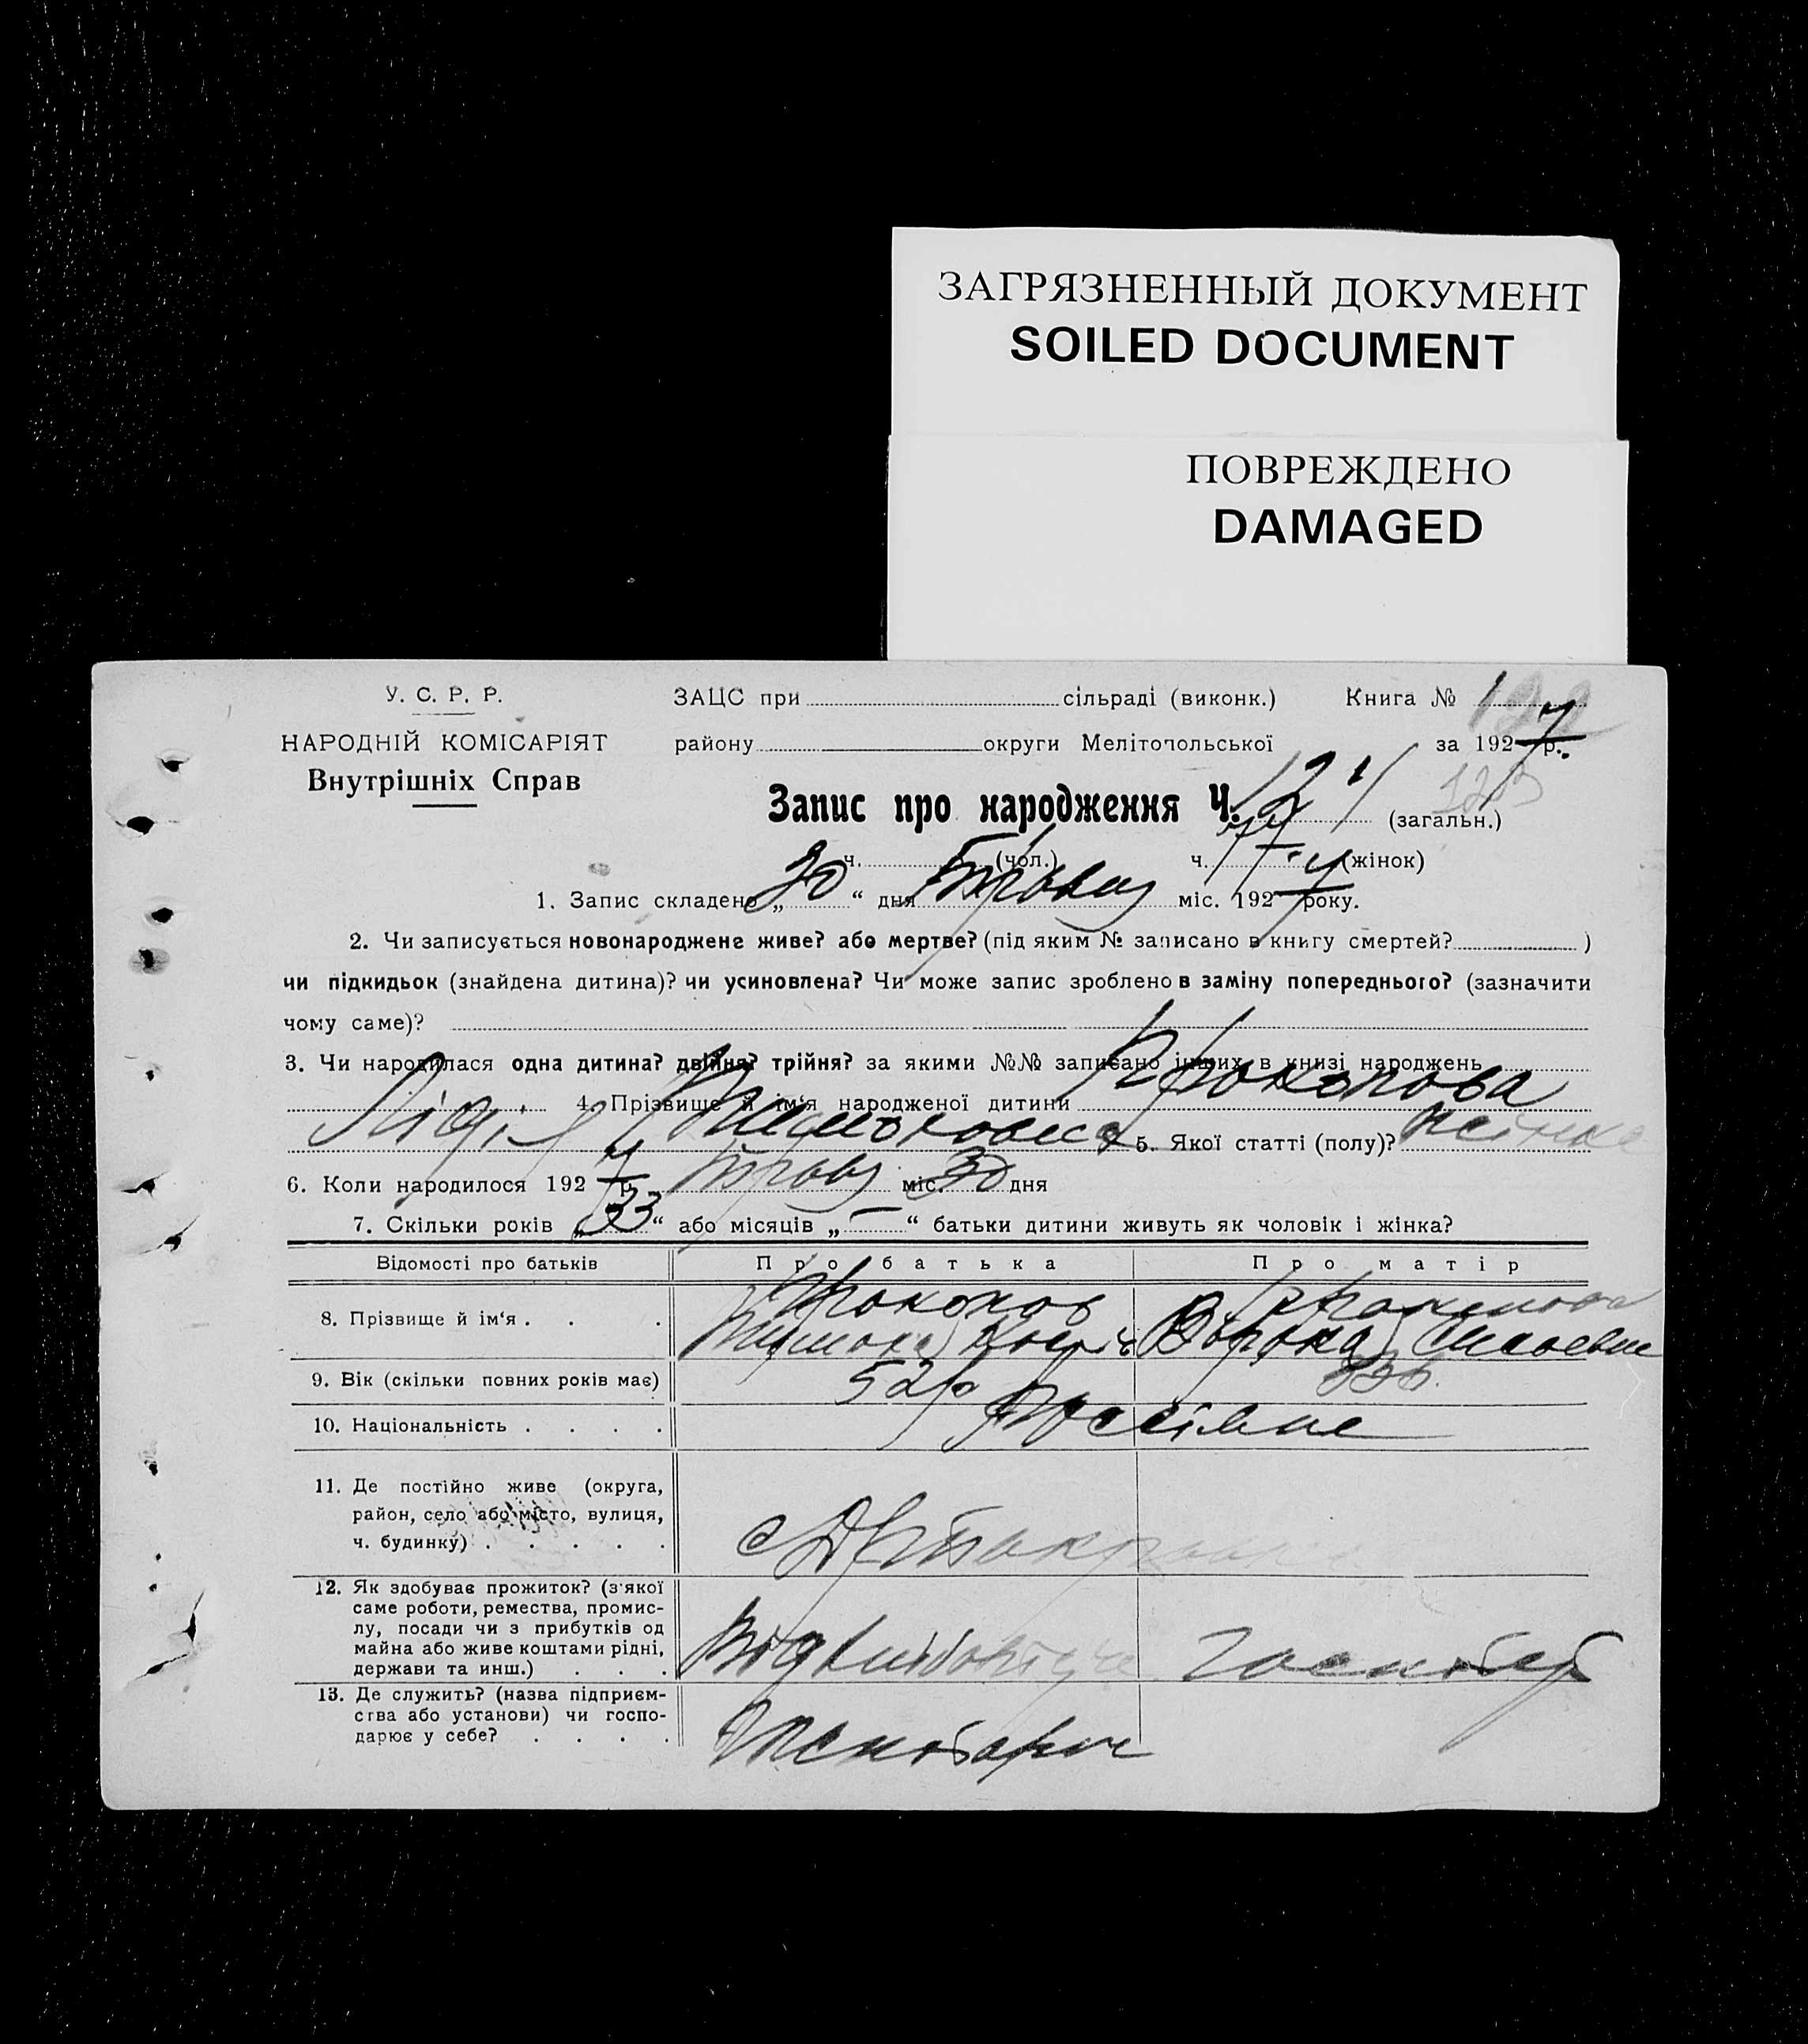 ЗАГРЯЗНЕННЫЙ ДОКУМЕНТ
SOILED DOCUMENT
ПОВРЕЖДЕНО
DAMAGED
У. С. Р. Р.
НАРОДНІЙ КОМІСАРІЯТ
Внутрішніх Справ
ЗАЦС при сільраді (виконк.) Книга № 1
району округи Мелітопольської за 1927 р.
Запис про народження Ч. 121 (загальн.)
ч. (чол.) ч. (жінок)
1. Запис складено „30“ дня Травня міс. 1927 року.
2. Чи записується новонароджене живе? або мертве? (під яким № записано в книгу смертей? )
чи підкидьок (знайдена дитина)? чи усиновлена? Чи може запис зроблено в заміну попереднього? (зазначити
чому саме)?
3. Чи народилася одна дитина? двійня? трійня? за якими №№ записано інших в книзі народжень
4. Прізвище й ім‘я народженої дитини Прокопова
Лідія 5. Якої статті (полу)? жіноча
6. Коли народилося 1927 р. Травня міс. 30 дня
7. Скільки років „33“ або місяців „—“ батьки дитини живуть як чоловік і жінка?
Відомості про батьків
Про батька
Про матір
8. Прізвище й ім‘я . . .
Прокопов
9. Вік (скільки повних років має)
52р
10. Національність . . . .
11. Де постійно живе (округа,
район, село або місто, вулиця,
ч. будинку) . . . . .
12. Як здобуває прожиток? (з‘якої
саме роботи, ремества, промис-
лу, посади чи з прибутків од
майна або живе коштами рідні,
держави та инш.) . . .
13. Де служить? (назва підприєм-
ства або установи) чи госпо-
дарює у себе? . . . .